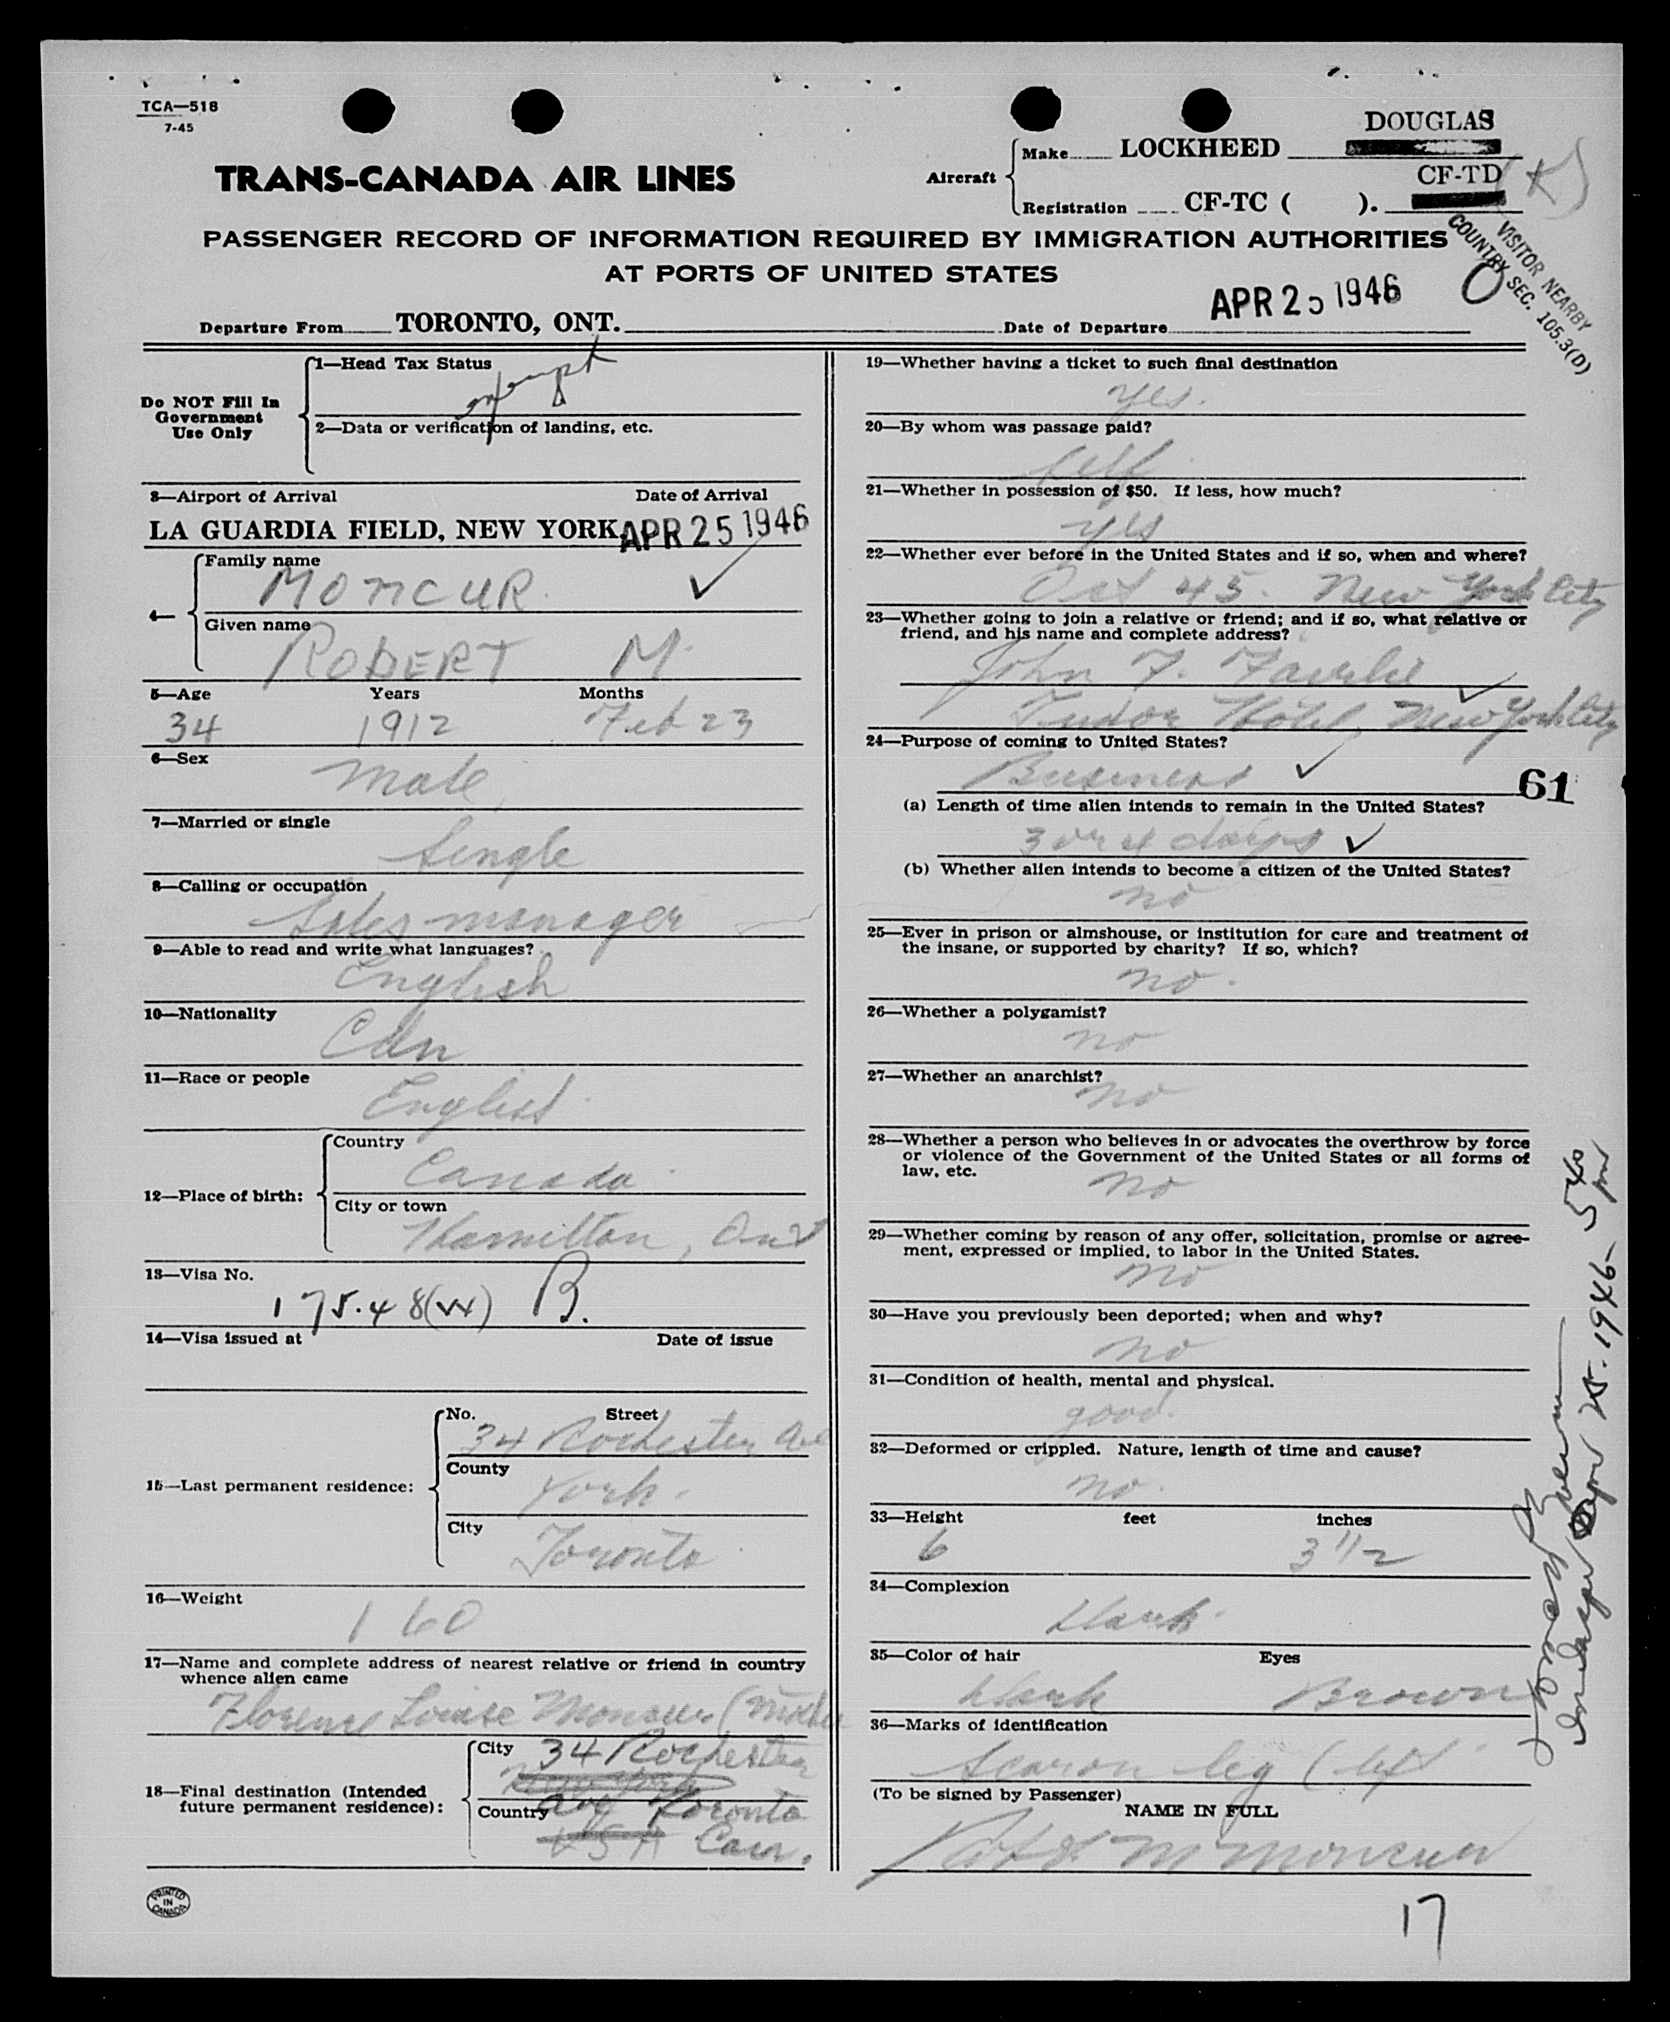 TCA—518
7-45
TRANS-CANADA AIR LINES
Aircraft
Make LOCKHEED DOUGLAS
Registration CF-TC ( ). CF-TD (K)
PASSENGER RECORD OF INFORMATION REQUIRED BY IMMIGRATION AUTHORITIES
AT PORTS OF UNITED STATES
VISITOR NEARBY
COUNTRY SEC. 105.3(D)
Departure From TORONTO, ONT. Date of Departure APR 25 1946
Do NOT Fill In
Government
Use Only
1—Head Tax Status
exempt
2—Data or verification of landing, etc.
3—Airport of Arrival Date of Arrival
LA GUARDIA FIELD, NEW YORK APR 25 1946
4—
Family name
MONCUR
Given name
ROBERT M.
5—Age Years Months
34 1912 Feb 23
6—Sex
Male
7—Married or single
Single
8—Calling or occupation
Sales manager
9—Able to read and write what languages?
English
10—Nationality
Cdn
11—Race or people
English
12—Place of birth:
Country
Canada
City or town
Hamilton, Ont
13—Visa No.
175.48(vv) B.
14—Visa issued at Date of issue
15—Last permanent residence:
No. Street
34 Rochester Ave
County
York
City
Toronto
16—Weight
160
17—Name and complete address of nearest relative or friend in country
whence alien came
Florence Louise Moncur (Mother
18—Final destination (Intended
future permanent residence):
City 34 Rochester
New York
Country Ave Toronto
USA Can.
PRINTED
IN
CANADA
19—Whether having a ticket to such final destination
yes.
20—By whom was passage paid?
self
21—Whether in possession of $50. If less, how much?
yes
22—Whether ever before in the United States and if so, when and where?
Oct 45. New York City
23—Whether going to join a relative or friend; and if so, what relative or
friend, and his name and complete address?
John F. Fairlie
Tudor Hotel, New York City
24—Purpose of coming to United States?
Business
61
(a) Length of time alien intends to remain in the United States?
3 or 4 days
(b) Whether alien intends to become a citizen of the United States?
no
25—Ever in prison or almshouse, or institution for care and treatment of
the insane, or supported by charity? If so, which?
no.
26—Whether a polygamist?
no
27—Whether an anarchist?
no
28—Whether a person who believes in or advocates the overthrow by force
or violence of the Government of the United States or all forms of
law, etc.
no
29—Whether coming by reason of any offer, solicitation, promise or agree-
ment, expressed or implied, to labor in the United States.
no
30—Have you previously been deported; when and why?
no
31—Condition of health, mental and physical.
good.
32—Deformed or crippled. Nature, length of time and cause?
no.
33—Height feet inches
6 3 1/2
34—Complexion
dark
35—Color of hair Eyes
dark Brown
36—Marks of identification
Scar on leg (left
(To be signed by Passenger)
NAME IN FULL
Robt M Moncur
17
Apr 25. 1946 - 540 pm